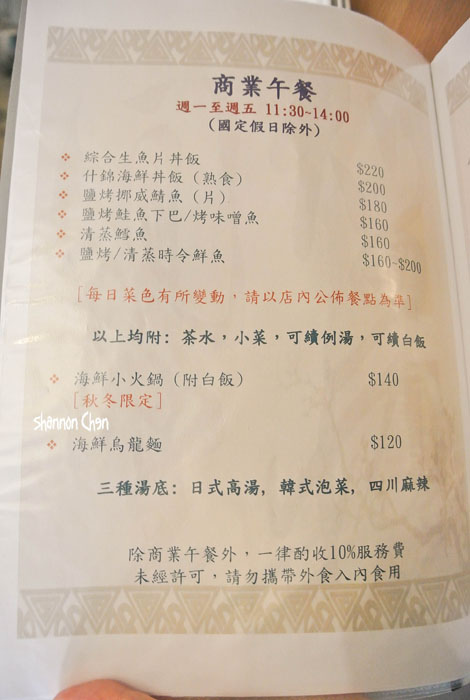 商業午餐
週一至週五 11:30~14:00
(國定假日除外)
綜合生魚片丼飯 $220
什錦海鮮丼飯 (熟食) $200
鹽烤挪威鯖魚 (片) $180
鹽烤鮭魚下巴/烤味噌魚 $160
清蒸鱈魚 $160
鹽烤/清蒸時令鮮魚 $160~$200
[每日菜色有所變動，請以店內公佈餐點為準]
以上均附: 茶水，小菜，可續例湯，可續白飯
海鮮小火鍋 (附白飯) $140
[秋冬限定]
shannon Chen
海鮮烏龍麵 $120
三種湯底: 日式高湯, 韓式泡菜, 四川麻辣
除商業午餐外，一律酌收10%服務費
未經許可，請勿攜帶外食入內食用